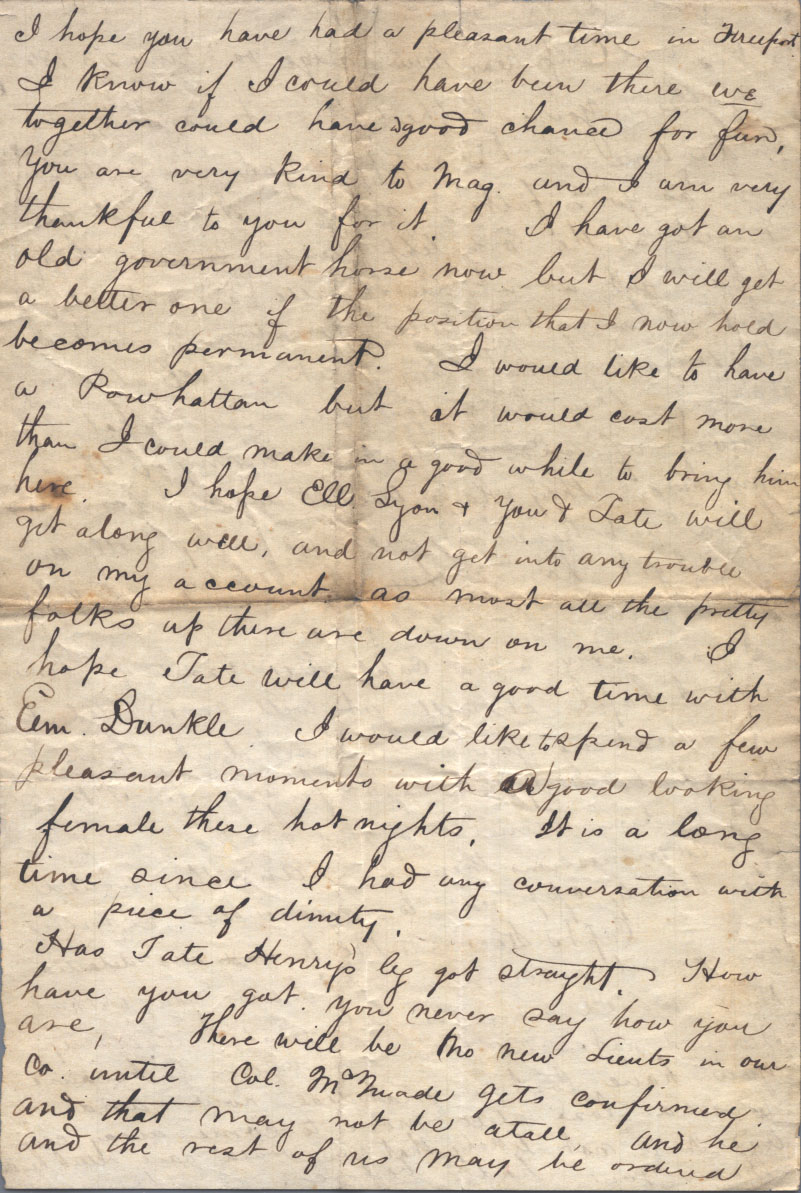 I hope you have had a pleasant time in Freeport.
I know if I could have been there we
together could have good chance for fun,
You are very kind to Mag. and I am very
thankful to you for it. I have got an
old government horse now but I will get
a better one if the position that I now hold
becomes permanent. I would like to have
a Powhattan but it would cost more
than I could make in a good while to bring him
here. I hope Ell. Lyon & You & Tate will
get along well, and not get into any trouble
on my account as most all the pretty
folks up there are down on me. I
hope Tate will have a good time with
Em. Dunkle I would like to spend a few
pleasant moments with a good looking
female these hot nights. It is a long
time since I had any conversation with
a piece of dimity.
Has Tate Henry's leg got straight. How
have you got. you never say how you
are, There will be no new Lieuts in our
Co. until Col. McMade gets confirmed.
and that may not be atall, and he
and the rest of us may be ordered